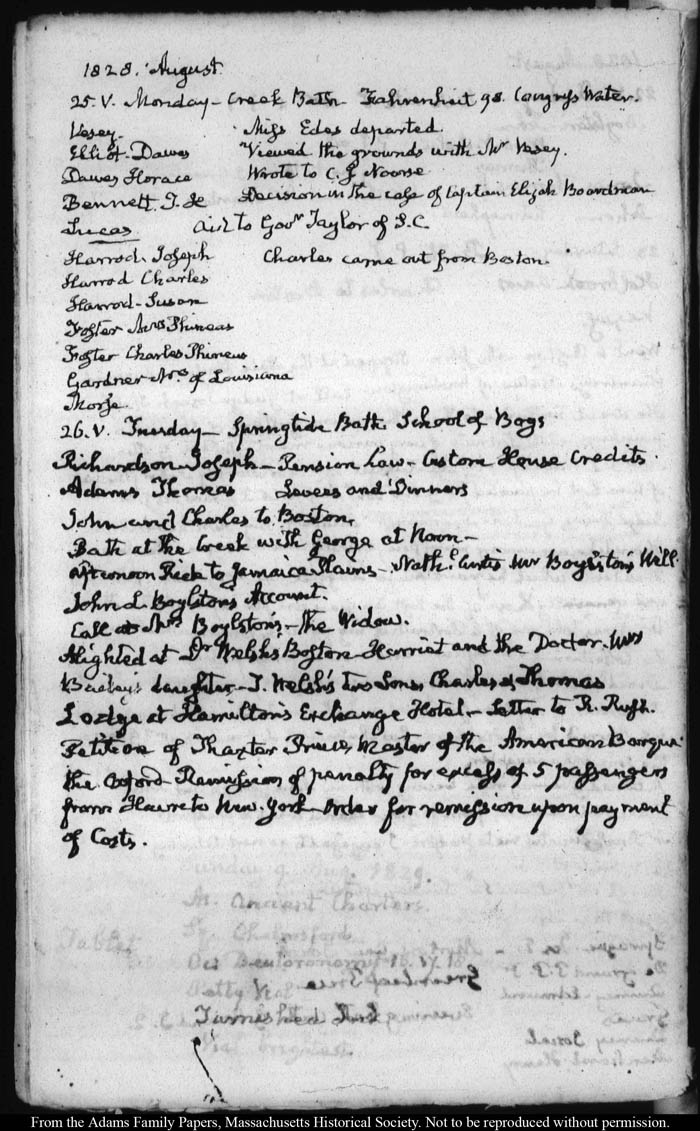 1828. August.
25. V. Monday – Creek Bath – Fahrenheit 98. Congress Water.
Vesey – Miss Edes departed.
Elliot – Dawes Viewed the grounds with Mr Vesey.
Dawes Horace Wrote to C. J Nourse
Bennett. J. Decision in the case of Captain Elijah Boardman
Lucas Aid to Govr Taylor of S. C.
Harrod. Joseph Charles came out from Boston.
Harrod Charles
Harrod – Susan
Foster Mrs Phineas
Foster Charles Phineas
Gardner Mrs of Louisiana
Morse.
26. V. Tuesday – Springtide Bath. School of Boys
Richardson – Joseph – Pension Law – Custom House Credits.
Adams Thomas Levees and Dinners
John and Charles to Boston,
Bath at the Creek with George at Noon –
Afternoon Ride to Jamaica Plains – Nathl. Curtis Boylston's Will.
John L Boylston's Account.
Call at Mrs Boylston's – the Widow.
Alighted at Dr Welsh's Boston – Harriet and the Doctor.
Bailey's daughter – T. Welsh's two Sons, Charles & Thomas
Lodge at Hamilton's Exchange Hotel – Letter to R. Rush.
Petition of Thaxter Prince, Master of the American Barque
the Oxford – Remission of penalty for excess of 5 passengers
from Havre to New-York – Order for remission upon payment
of Costs.
Tablet
From the Adams Family Papers, Massachusetts Historical Society. Not to be reproduced without permission.